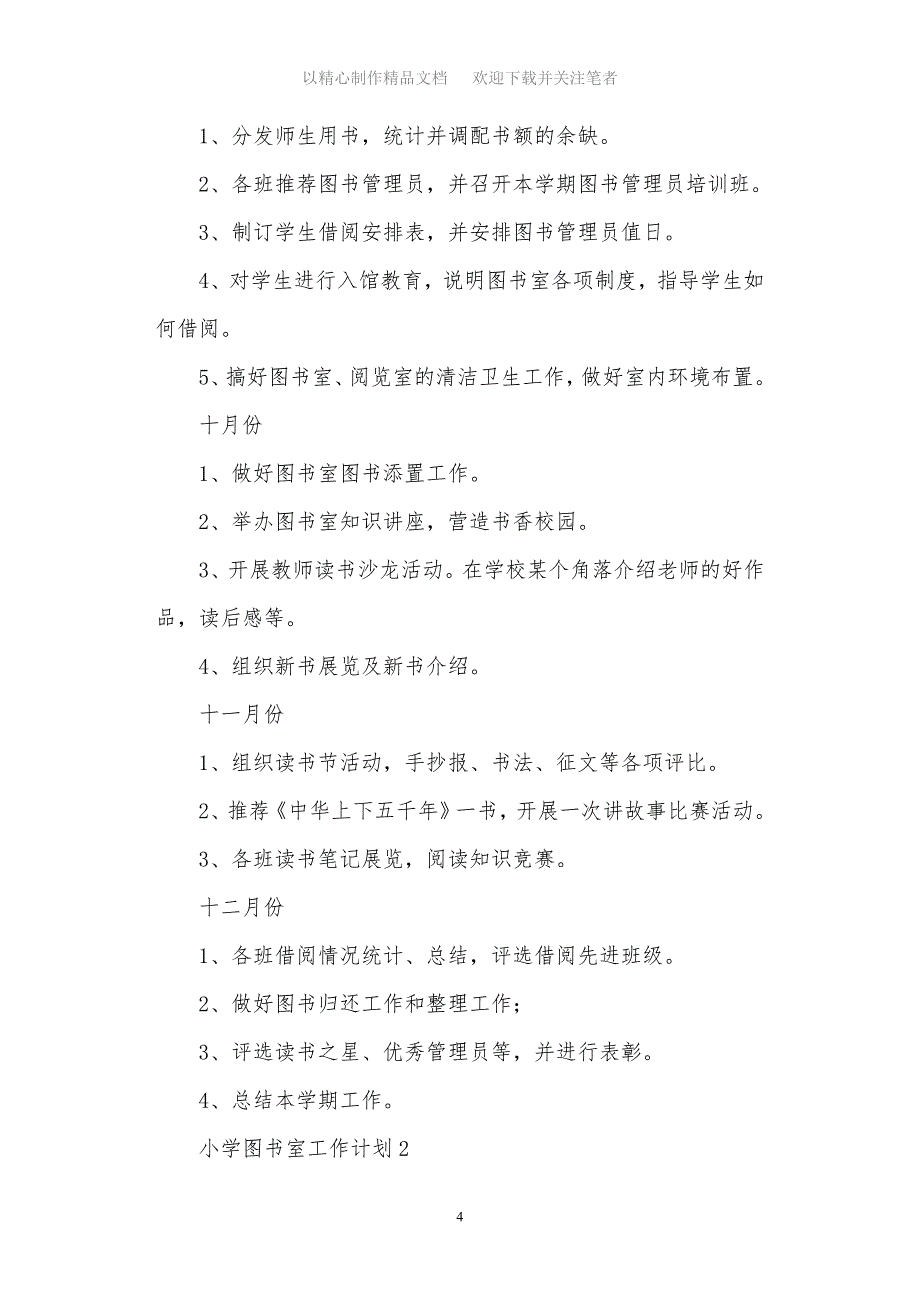 以精心制作精品文档 欢迎下载并关注笔者
1、分发师生用书，统计并调配书额的余缺。
2、各班推荐图书管理员，并召开本学期图书管理员培训班。
3、制订学生借阅安排表，并安排图书管理员值日。
4、对学生进行入馆教育，说明图书室各项制度，指导学生如
何借阅。
5、搞好图书室、阅览室的清洁卫生工作，做好室内环境布置。
十月份
1、做好图书室图书添置工作。
2、举办图书室知识讲座，营造书香校园。
3、开展教师读书沙龙活动。在学校某个角落介绍老师的好作
品，读后感等。
4、组织新书展览及新书介绍。
十一月份
1、组织读书节活动，手抄报、书法、征文等各项评比。
2、推荐《中华上下五千年》一书，开展一次讲故事比赛活动。
3、各班读书笔记展览，阅读知识竞赛。
十二月份
1、各班借阅情况统计、总结，评选借阅先进班级。
2、做好图书归还工作和整理工作；
3、评选读书之星、优秀管理员等，并进行表彰。
4、总结本学期工作。
小学图书室工作计划2
4